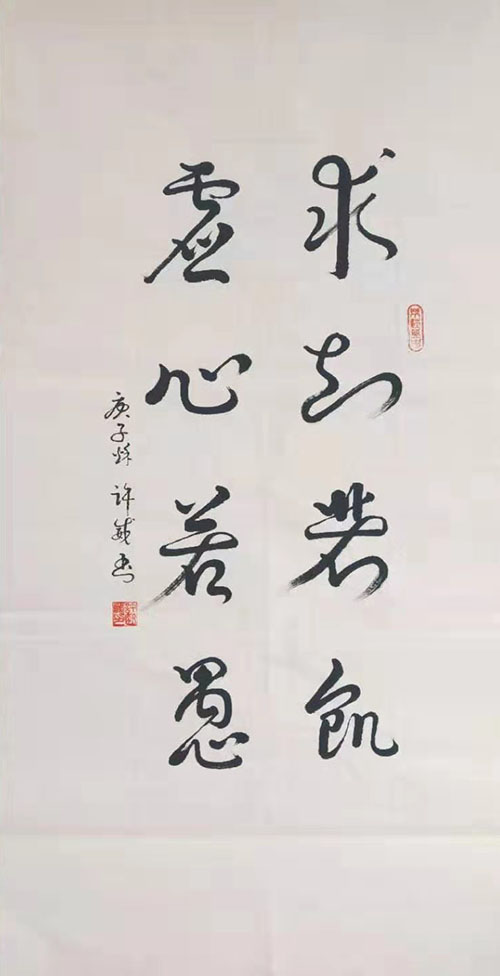 求知若飢
虚心若愚
庚子秋 许 书